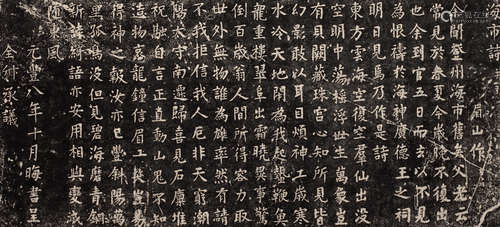 市詩
眉山作
余聞登州海市舊矣父老云
常見於春夏今歲晚不復出
也余到官五日而去以不見
為恨禱於海神廣德王之祠
明日見焉乃作是詩
東方雲海空復空群仙出沒
空明中蕩搖浮世生萬象豈
有貝闕藏珠宮心知所見皆
幻影敢以耳目煩神工歲寒
水冷天地閉為我起蟄鞭魚
龍重樓翠阜出霜曉異事驚
倒百歲翁人間所得容力取
世外無物誰為雄率然有請
不我拒信我人厄非天窮潮
陽太守南遷歸喜見石廩堆
祝融自言正直動山鬼不知
造物哀龍鍾信眉一笑豈易
得神之報汝亦已豐斜陽萬
里孤鳥沒但見碧海磨青銅
新詩綺語亦安用相與變滅
隨東風
元豐八年十月晦書呈
全叔承議